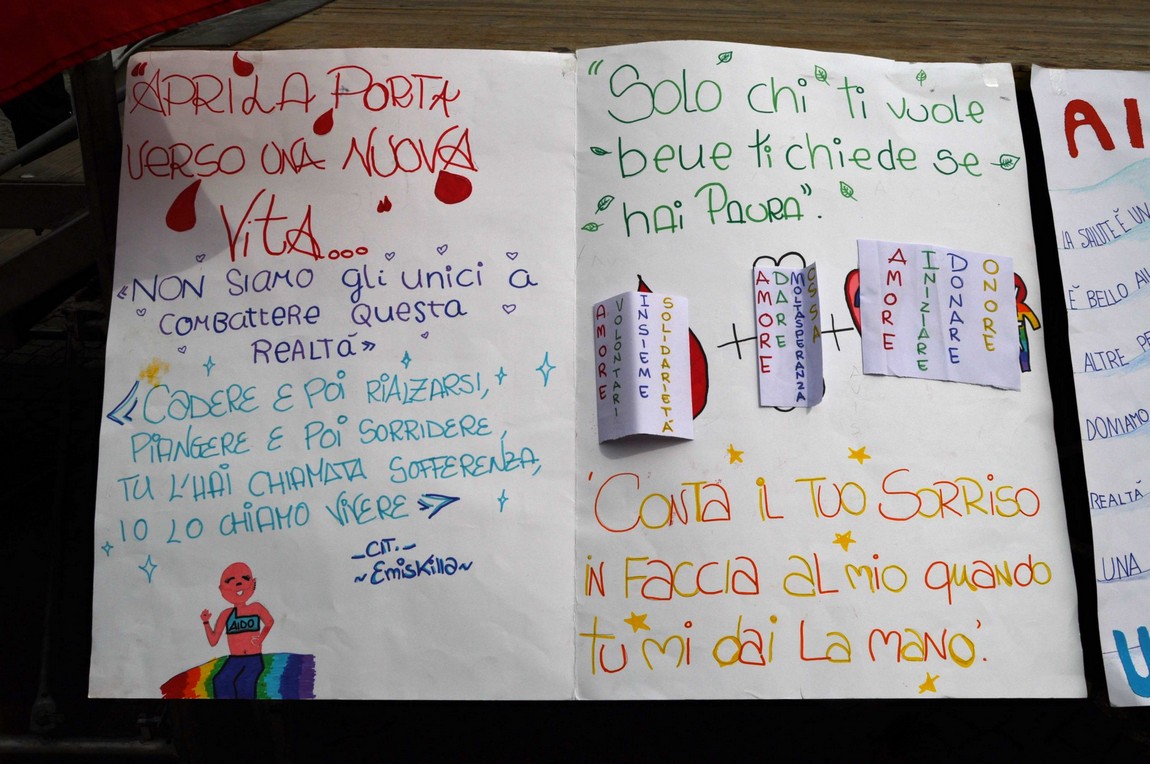 "APRI LA PORTA
VERSO UNA NUOVA
VITA..."
«NON SIAMO gli unici a
COMBATTERE Questa
REALTÀ»
«CADERE E POI RIALZARSI,
PIANGERE E POI SORRIDERE,
TU L'HAI CHIAMATA SOFFERENZA,
IO LO CHIAMO VIVERE»
-CIT.-
~Emiskilla~
AIDO
"Solo chi ti vuole
bene ti chiede se
hai PAURA".
AMORE
VOLONTARI
INSIEME
SOLIDARIETÀ
+
AMORE
DARE
MOLTASPERANZA
OSSA
+
AMORE
INIZIARE
DONARE
ONORE
'CONTA IL TUO SORRISO
IN FACCIA AL MIO QUANDO
TU MI DAI LA MANO'.
AI
LA SALUTE È UN
È BELLO
ALTRE PE
DONIAMO
REALTÀ
UNA